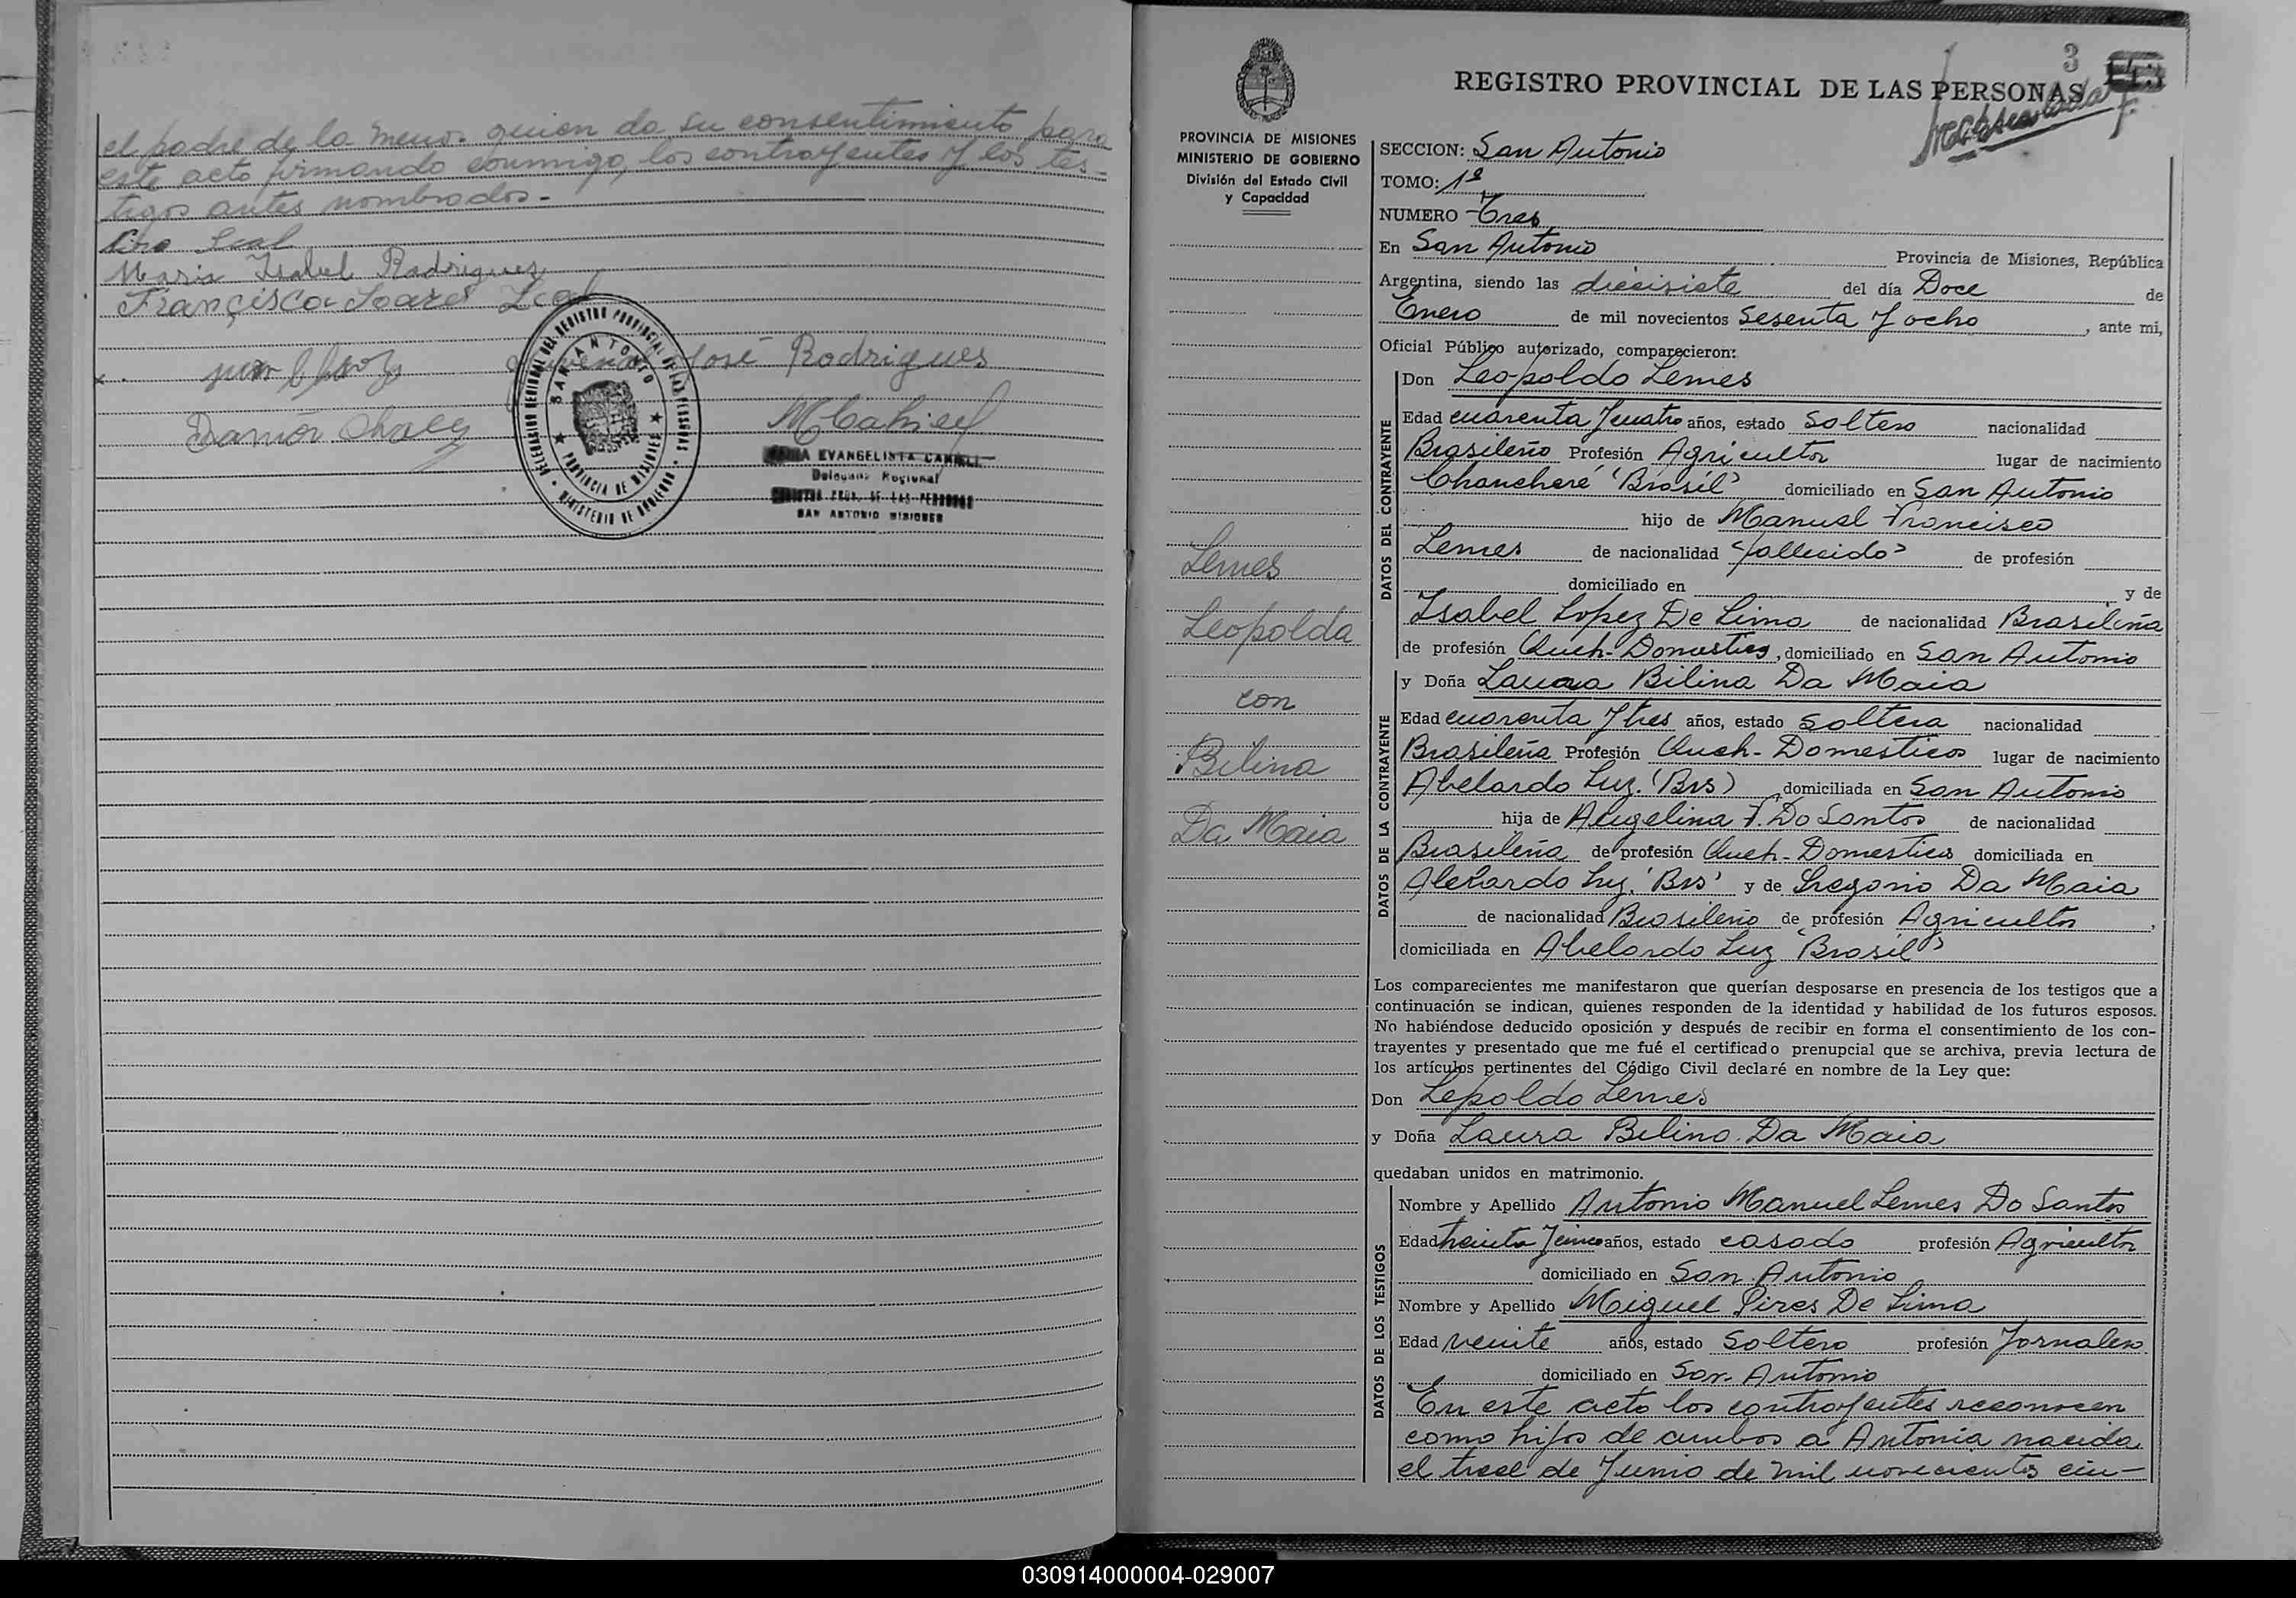 el padre de la menor quien da su consentimiento para
este acto firmando conmigo, los contrayentes y los tes-
tigos antes nombrados.-
Lino Leal
Maria Isabel Rodriguez
Françisco Soares Leal
José Rodrigues
Ramón
MCahiel
DELEGACION REGIONAL DEL REGISTRO PROVINCIAL DE LAS PERSONAS
SAN ANTONIO
PROVINCIA DE MISIONES
MINISTERIO DE GOBIERNO
EVANGELISTA
Delegado Regional
REGISTRO PROV. DE LAS PERSONAS
SAN ANTONIO MISIONES
3
REGISTRO PROVINCIAL DE LAS PERSONAS
PROVINCIA DE MISIONES
MINISTERIO DE GOBIERNO
División del Estado Civil
y Capacidad
SECCION: San Antonio
TOMO: 1º
NUMERO Tres
En San Antonio Provincia de Misiones, República
Argentina, siendo las diecisiete del día Doce de
Enero de mil novecientos Sesenta y ocho, ante mi,
Oficial Público autorizado, comparecieron:
DATOS DEL CONTRAYENTE
Don Leopoldo Lemes
Edad cuarenta y cuatro años, estado Soltero nacionalidad
Brasileño Profesión Agricultor lugar de nacimiento
Chancheré "Brasil" domiciliado en San Antonio
hijo de Manuel Francisco
Lemes de nacionalidad "fallecido" de profesión
domiciliado en y de
Isabel Lopez De Lima de nacionalidad Brasileña
de profesión Queh-Domesticos, domiciliado en San Antonio
DATOS DE LA CONTRAYENTE
y Doña Laura Bilina Da Maia
Edad cuarenta y tres años, estado Soltera nacionalidad
Brasileña Profesión Queh-Domesticos lugar de nacimiento
Abelardo Luz. (Brs) domiciliada en San Antonio
hija de Angelina F. Do Santos de nacionalidad
Brasileña de profesión Queh-Domesticos domiciliada en
Abelardo Luz. 'Brs' y de Gregorio Da Maia
de nacionalidad Brasileño de profesión Agricultor,
domiciliada en Abelardo Luz "Brasil"
Lemes
Leopolda
con
Bilina
Da Maia
Los comparecientes me manifestaron que querían desposarse en presencia de los testigos que a
continuación se indican, quienes responden de la identidad y habilidad de los futuros esposos.
No habiéndose deducido oposición y después de recibir en forma el consentimiento de los con-
trayentes y presentado que me fué el certificado prenupcial que se archiva, previa lectura de
los artículos pertinentes del Código Civil declaré en nombre de la Ley que:
Don Lepoldo Lemes
y Doña Laura Bilina Da Maia
quedaban unidos en matrimonio.
DATOS DE LOS TESTIGOS
Nombre y Apellido Antonio Manuel Lemes Do Santos
Edad treinta y cinco años, estado casado profesión Agricultor
domiciliado en San Antonio
Nombre y Apellido Miguel Pires De Lima
Edad veinte años, estado Soltero profesión Jornalero
domiciliado en San Antonio
En este acto los contrayentes reconocen
como hijos de ambos a Antonia nacida
el trece de Junio de mil novecientos cin-
030914000004-029007